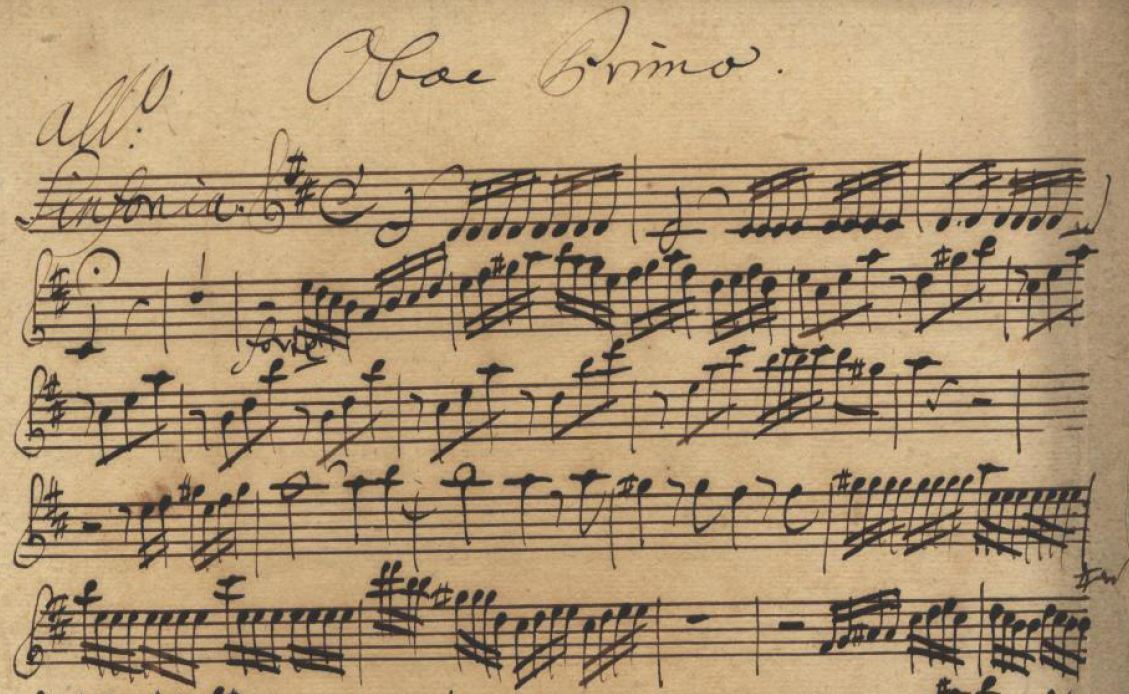 Oboe Primo.
all:o
Sinfonia.
forte